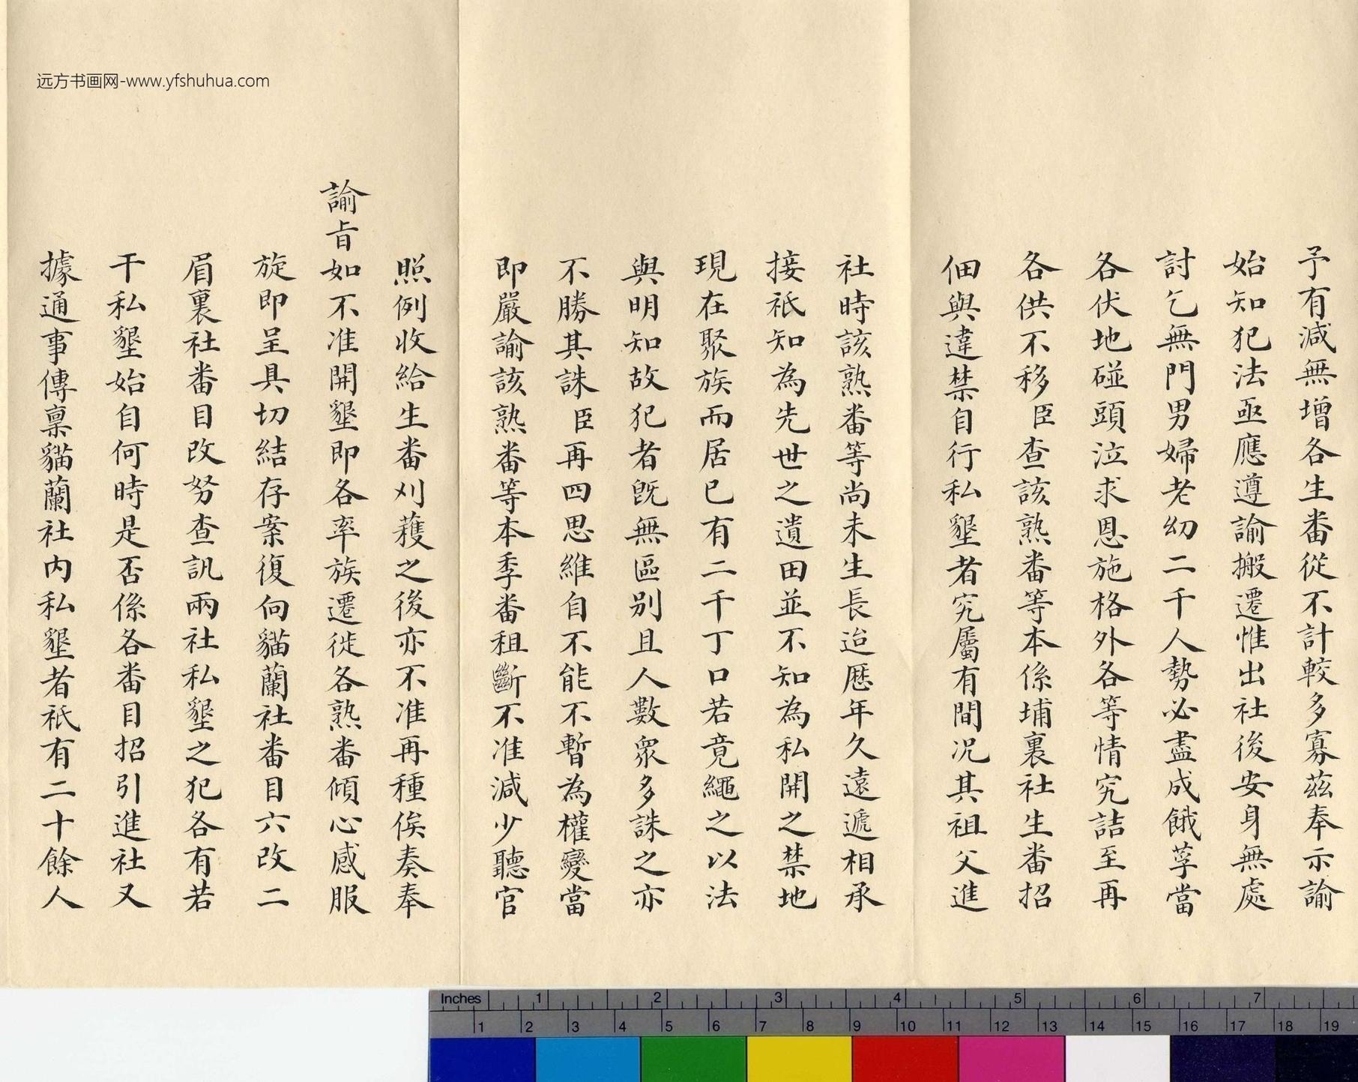 远方书画网-www.yfshuhua.com
予有減無增各生番從不計較多寡茲奉示諭
始知犯法亟應遵諭搬遷惟出社後安身無處
討乞無門男婦老幼二千人勢必盡成餓莩當
各伏地碰頭泣求恩施格外各等情究詰至再
各供不移臣查該熟番等本係埔裏社生番招
佃與違禁自行私墾者究屬有間况其祖父進
社時該熟番等尚未生長迨歷年久遠遞相承
接祇知為先世之遺田並不知為私開之禁地
現在聚族而居已有二千丁口若竟繩之以法
與明知故犯者旣無區別且人數眾多誅之亦
不勝其誅臣再四思維自不能不暫為權變當
即嚴諭該熟番等本季番租斷不准減少聽官
照例收給生番刈蓷之後亦不准再種俟奏奉
諭旨如不准開墾即各率族遷徙各熟番傾心感服
旋即呈具切結存案復向貓蘭社番目六改二
眉裏社番目改努查訊兩社私墾之犯各有若
干私墾始自何時是否係各番目招引進社又
據通事傳稟貓蘭社內私墾者祇有二十餘人
Inches 1 2 3 4 5 6 7
1 2 3 4 5 6 7 8 9 10 11 12 13 14 15 16 17 18 19